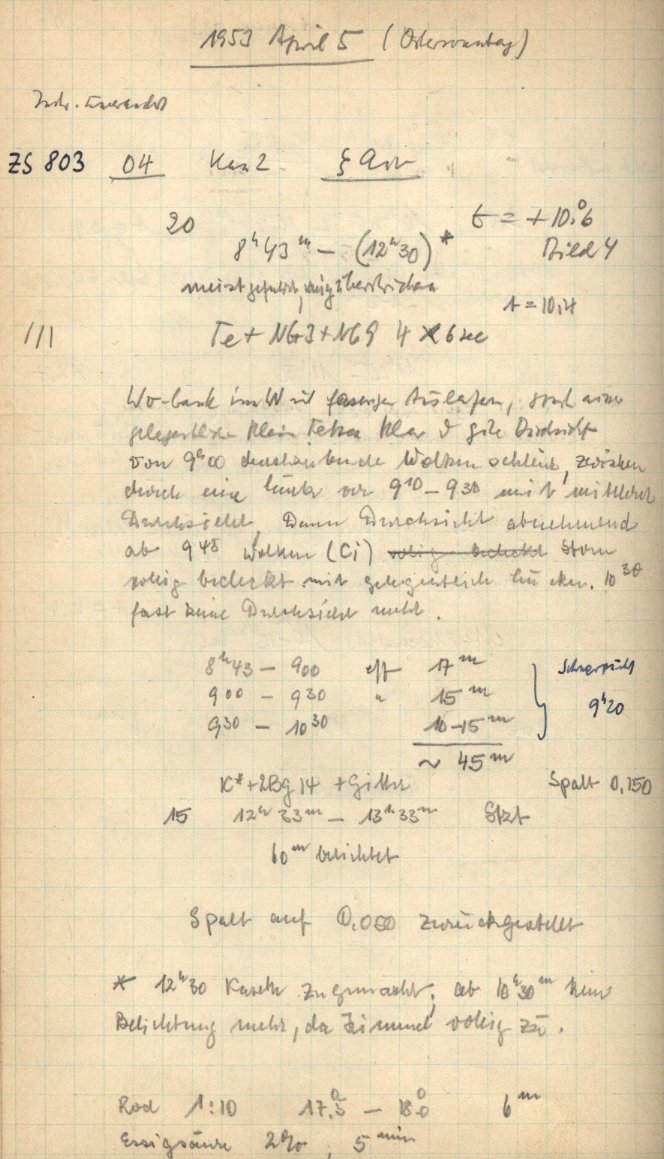 1953 April 5 (Ostersonntag)
ZS 803 04 Kas 2 ξ Aur
20 t = +10.°6
8ʰ43ᵐ – (12ʰ30)* Bild 4
meist geführt, überstrichen
t = 10,4
/// Te + NG3 + NG9 4 × 6 sec
Wo-bank im W mit faseriger Ausläufer, sonst
gelegentliche kleine Fetzen klar & gute Durchsicht
Von 9ʰ00 Wolken, zwischen
durch eine Lücke von 9¹⁰–9³⁰ mit mittlerer
Durchsicht. Dann Durchsicht abnehmend
ab 9⁴⁵ Wolken (Ci) völlig bedeckt
völlig bedeckt mit gelegentlich Lücken. 10³⁰
fast keine Durchsicht mehr.
8ʰ43 – 9⁰⁰ eff 17ᵐ Schwerpunkt
9⁰⁰ – 9³⁰ " 15ᵐ 9ʰ20
9³⁰ – 10³⁰ 10–15ᵐ
~ 45ᵐ
K* + 2Bg 14 + Gitter Spalt 0,150
15 12ʰ33ᵐ – 13ʰ33ᵐ
60ᵐ belichtet
Spalt auf 0,000 zurückgestellt
* 12ʰ30 Kasette zugemacht, ab 10ʰ30ᵐ keine
Belichtung mehr, da Himmel völlig zu.
Rod 1:10 17.°5 – 18.°0 6ᵐ
Essigsäure 2% , 5 min